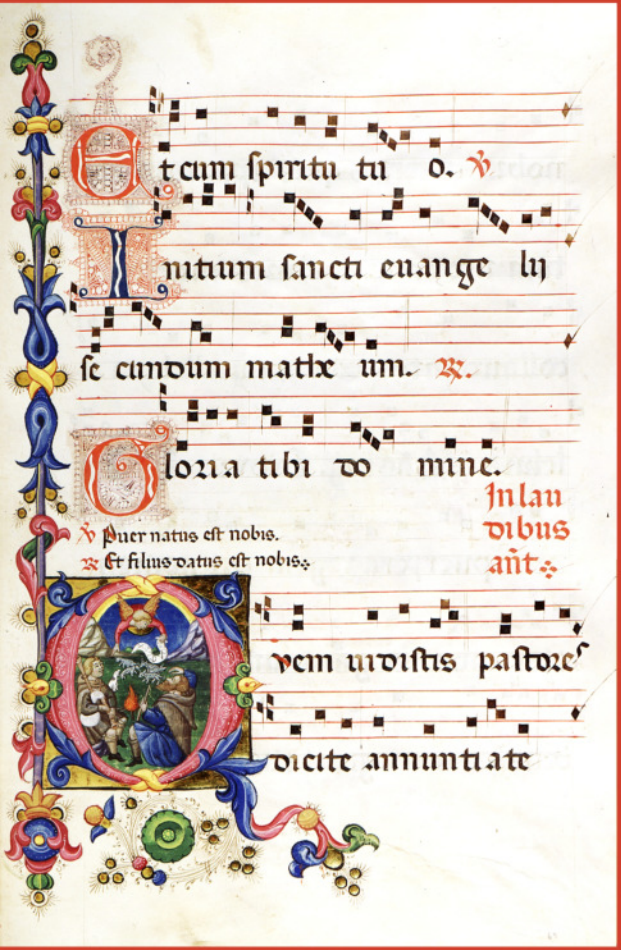 Et cum spiritu tu o. ℣
Initium sancti euange lij
se cundum mathe um. ℟.
Gloria tibi do mine.
In lau
dibus
℣ Puer natus est nobis.
℟ Et filius datus est nobis
an̄t
Quem uidistis pastores
dicite annunti ate